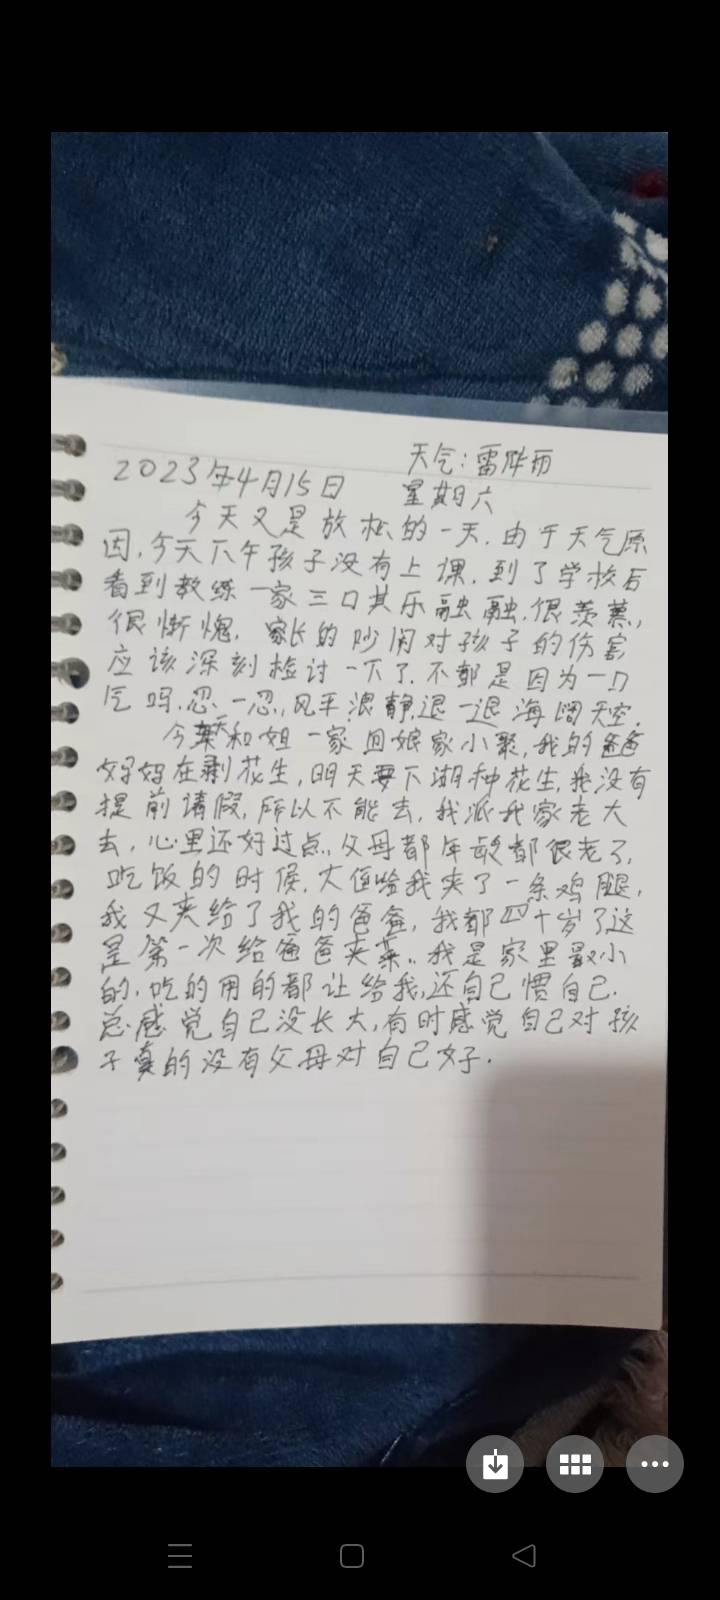 天气:雷阵雨
2023年4月15日
星期六
今天又是放松的一天.由于天气原
因,今天下午孩子没有上课.到了学校后
看到教练一家三口其乐融融.很羡慕,
很惭愧.家长的吵闹对孩子的伤害
应该深刻检讨一下了.不都是因为一口
气吗.忍一忍,风平浪静,退一退海阔天空.
今天和姐一家回娘家小聚,我的爸爸
妈妈在剥花生,明天要下湖种花生,我没有
提前请假,所以不能去,我派我家老大
去,心里还好过点..父母都年龄都很老了,
吃饭的时候,大侄给我夹了一条鸡腿,
我又夹给了我的爸爸,我都四十岁了这
是第一次给爸爸夹菜..我是家里最小
的.吃的用的都让给我,还自己惯自己.
总感觉自己没长大,有时感觉自己对孩
子真的没有父母对自己好.